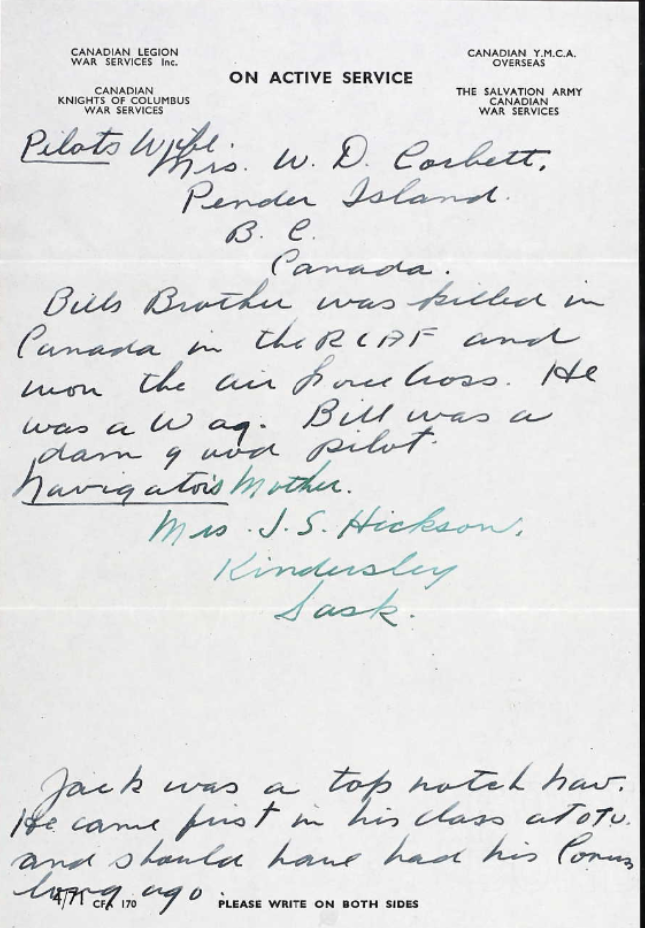 CANADIAN LEGION
WAR SERVICES Inc.
CANADIAN
KNIGHTS OF COLUMBUS
WAR SERVICES
ON ACTIVE SERVICE
CANADIAN Y.M.C.A.
OVERSEAS
THE SALVATION ARMY
CANADIAN
WAR SERVICES
Pilots Wife.
Mrs. W. D. Corbett.
Pender Island.
B. C.
Canada.
Bills Brother was killed in
Canada in the RCAF and
won the air force Cross. He
was a W ag. Bill was a
dam good pilot.
Navigator's Mother.
Mrs. J. S. Hickson.
Kindersley
Sask.
Jack was a top notch nav.
He came first in his class at OTU.
and should have had his Comm
long ago.
4/71 CFA 170 PLEASE WRITE ON BOTH SIDES